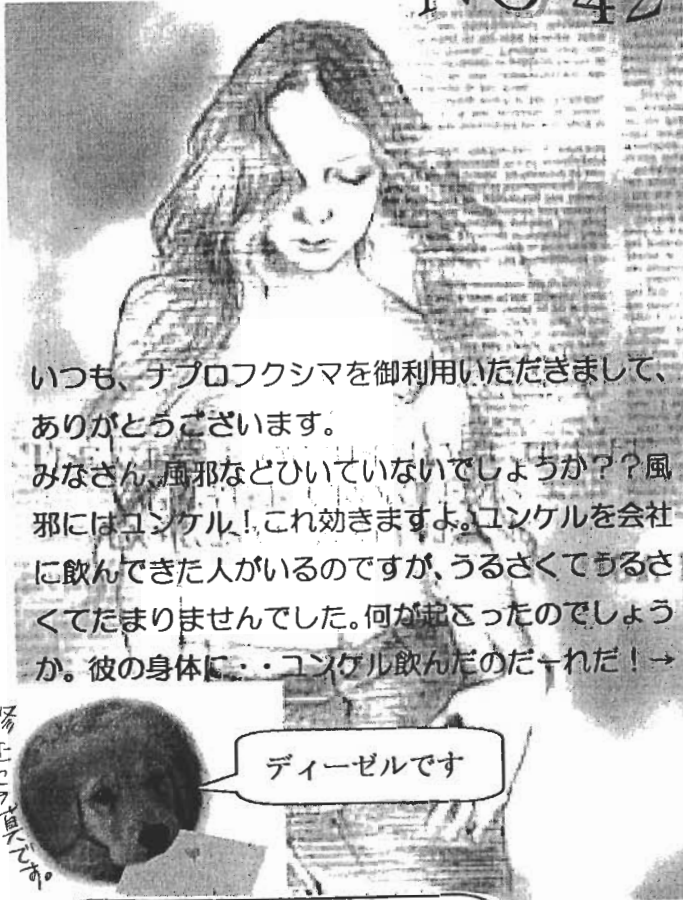 NO 42
いつも、ナプロフクシマを御利用いただきまして、
ありがとうございます。
みなさん、風邪などひいていないでしょうか？？風
邪にはユンケル！これ効きますよ。ユンケルを会社
に飲んできた人がいるのですが、うるさくてうるさ
くてたまりませんでした。何が起こったのでしょう
か。彼の身体に・・ユンケル飲んだのだーれだ！→
ディーゼルです